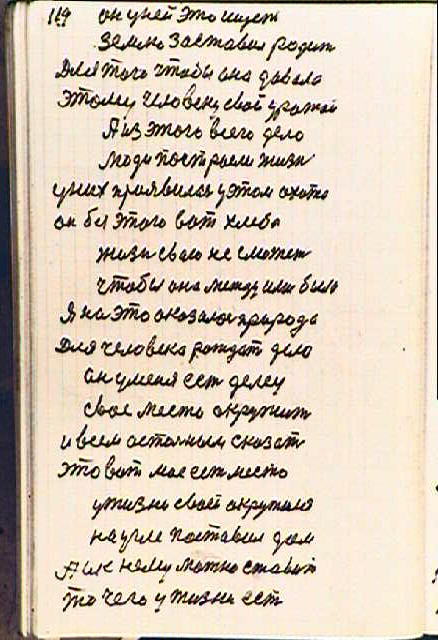 164 он у ней это ищет
землю заставил родит
Для того чтобы она давала
Этому человеку свой урожай
А из этого всего дело
люди построели жизн
у них приявилас у этом охота
он без этого вот хлеба
жизн свою не сможет
чтобы она между ими была
А на это оказалос природа
Для человека рождат дело
он у меня ест делец
свое место окружит
и всем осталным сказат
это вот мое ест место
у жизне своей окружило
на угле поставил дом
А ик нему можно ставит
то чего у жизне ест